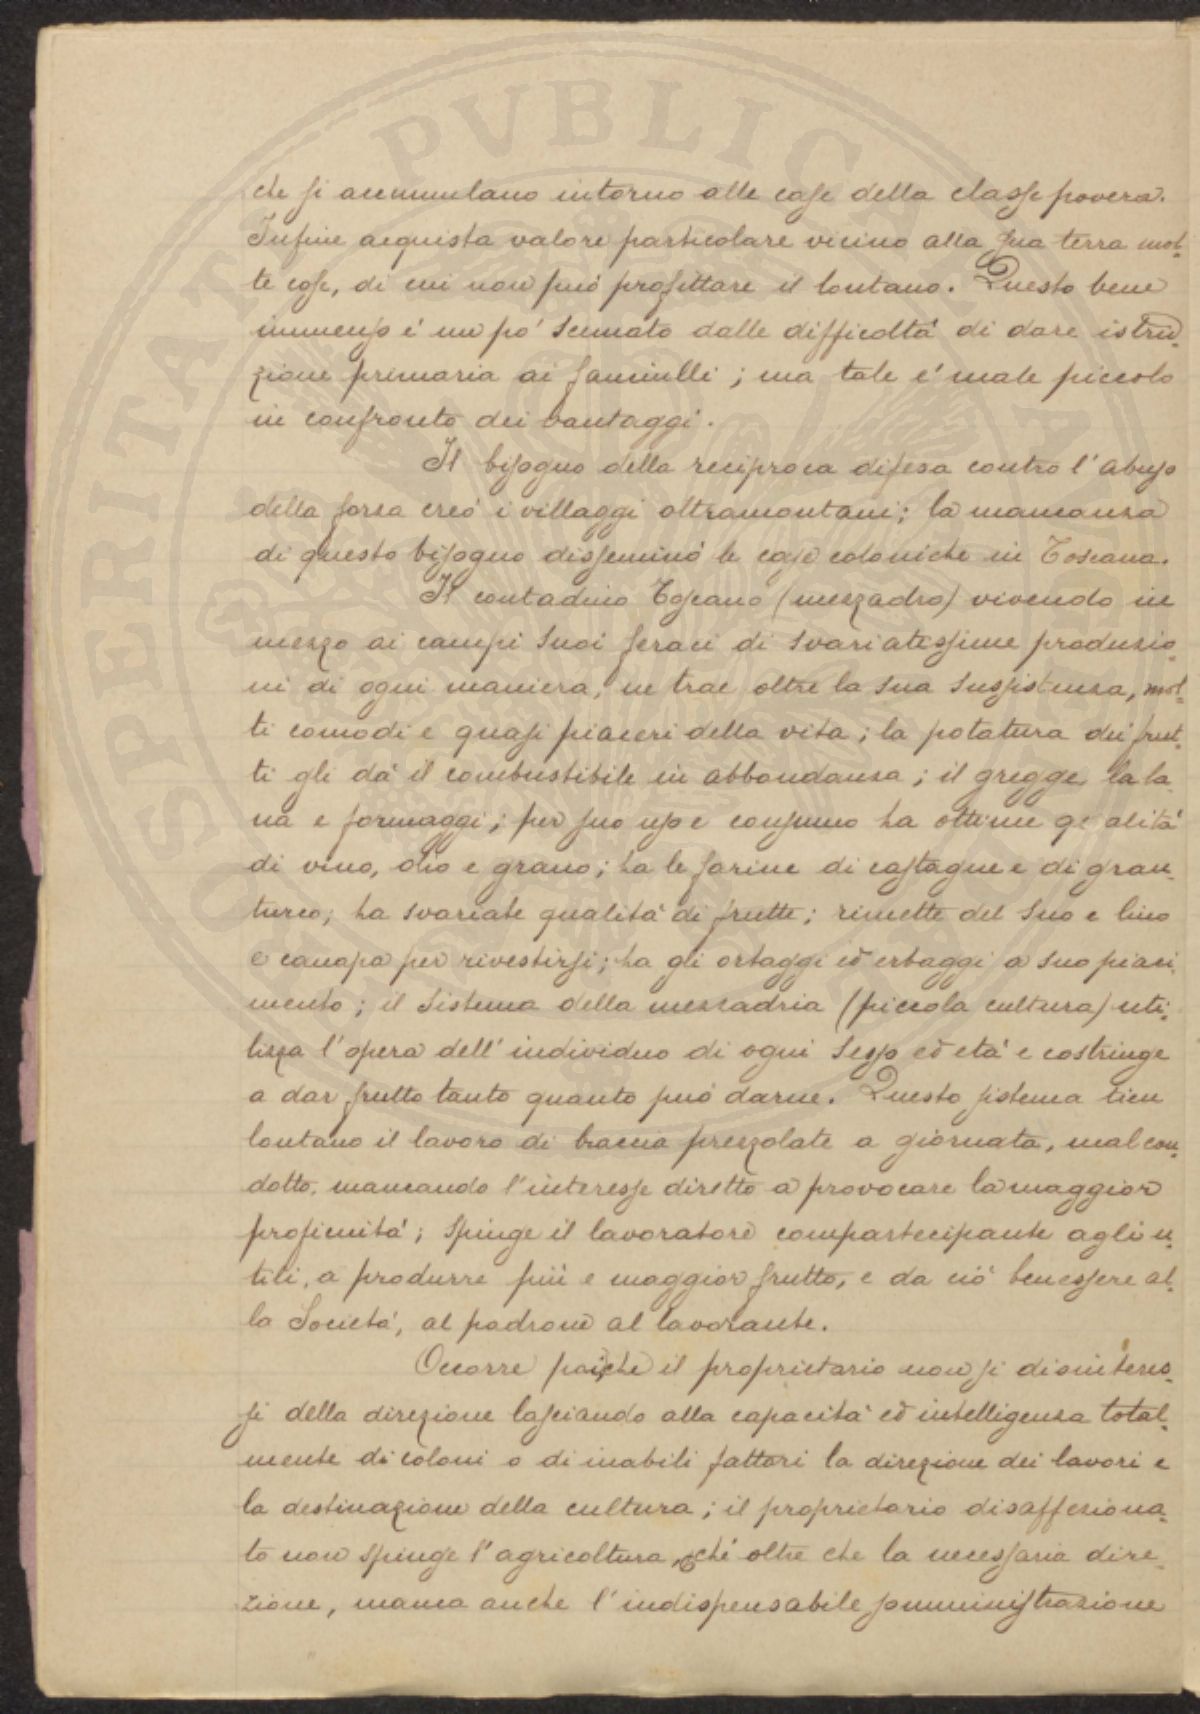 che si accumulano intorno alle case della classe povera.
Infine acquista valore particolare vicino alla sua terra mol-
te cose, di cui non può profittare il lontano. Questo bene
immenso é un pó scemato dalle difficoltá di dare istru-
zione primaria ai fanciulli; ma tale é male piccolo
in confronto dei vantaggi.
Il bisogno della reciproca difesa contro l'abuso
della forza creó i villaggi oltramontani; la mancanza
di questo bisogno disseminó le case coloniche in Toscana.
Il contadino Toscano (mezzadro) vivendo in
mezzo ai campi suoi feraci di svariatissime produzio-
ni di ogni maniera, ne trae oltre la sua sussistenza, mol-
ti comodi e quasi piaceri della vita; la potatura dei frut-
ti gli dá il combustibile in abbondanza; il gregge la la-
na e formaggi; per suo uso e consumo ha ottime qualitá
di vino, olio e grano; ha le farine di castagne e di gran-
turco; ha svariate qualitá di frutte; rimette del suo e lino
e canapa per rivestirsi; ha gli ortaggi ed erbaggi a suo piaci-
mento; il sistema della mezzadria (piccola cultura) uti-
lizza l'opera dell'individuo di ogni sesso ed etá e costringe
a dar frutto tanto quanto puó darne. Questo sistema tien
lontano il lavoro di braccia prezzolate a giornata, mal con-
dotto, mancando l'interesse diretto a provocare la maggior
proficuitá; spinge il lavoratore compartecipante agli u-
tili, a produrre piú e maggior frutto, e da ció benessere al-
la Societá, al padrone al lavorante.
Occorre poiche il proprietario non si disinteres-
si della direzione lasciando alla capacitá ed intelligenza total-
mente di coloni o di inabili fattori la direzione dei lavori e
la destinazione della cultura; il proprietario disaffeziona-
to non spinge l'agricoltura, ché oltre che la necessaria dire-
zione, manca anche l'indispensabile somministrazione
PROSPERITATI PVBLICAE